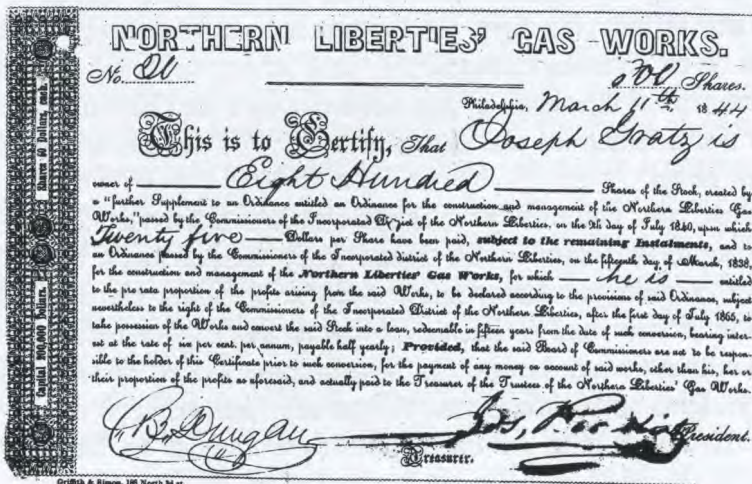 NORTHERN LIBERTIES' GAS WORKS.
No.
Shares.
Philadelphia, March 11th 1844
This is to Certify, That Joseph Gratz is
owner of Eight Hundred Shares of the Stock, created by
a "further Supplement to an Ordinance entitled an Ordinance for the construction and management of the Northern Liberties Gas
Works," passed by the Commissioners of the Incorporated District of the Northern Liberties, on the 9th day of July 1840, upon which
Twenty five Dollars per Share have been paid, subject to the remaining Instalments, and to
an Ordinance passed by the Commissioners of the Incorporated district of the Northern Liberties, on the fifteenth day of March, 1838,
for the construction and management of the Northern Liberties' Gas Works, for which he is entitled
to the pro rata proportion of the profits arising from the said Works, to be declared according to the provisions of said Ordinance, subject
nevertheless to the right of the Commissioners of the Incorporated District of the Northern Liberties, after the first day of July 1865, to
take possession of the Works and convert the said Stock into a loan, redeemable in fifteen years from the date of such conversion, bearing inter-
est at the rate of six per cent. per annum, payable half yearly; Provided, that the said Board of Commissioners are not to be respon-
sible to the holder of this Certificate prior to such conversion, for the payment of any money on account of said works, other than his, her or
their proportion of the profits as aforesaid, and actually paid to the Treasurer of the Trustees of the Northern Liberties' Gas Works.
C. B. Dungan
President.
Treasurer.
Capital 200,000 Dollars. Shares 50 Dollars, each.
Griffith & Simon, 188 North 3d st.